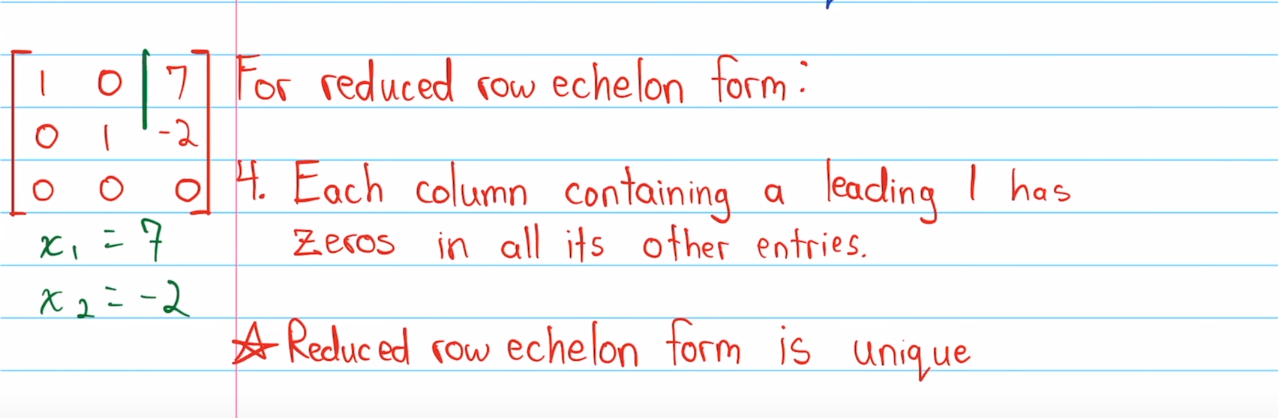 1 0 | 7
0 1 -2
0 0 0
x₁ = 7
x₂ = -2
For reduced row echelon form:
4. Each column containing a leading 1 has
zeros in all its other entries.
☆ Reduced row echelon form is unique